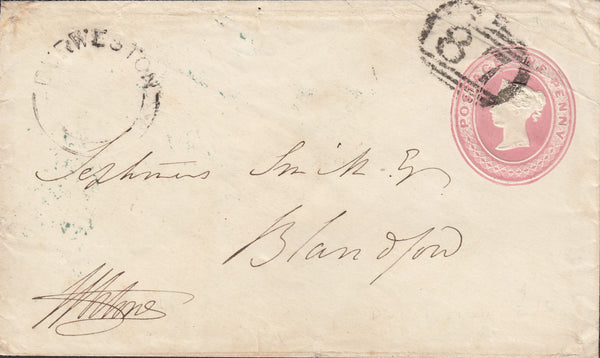 DURWESTON
POSTAGE ONE PENNY
8
Septimus Smith Esq
Blandford